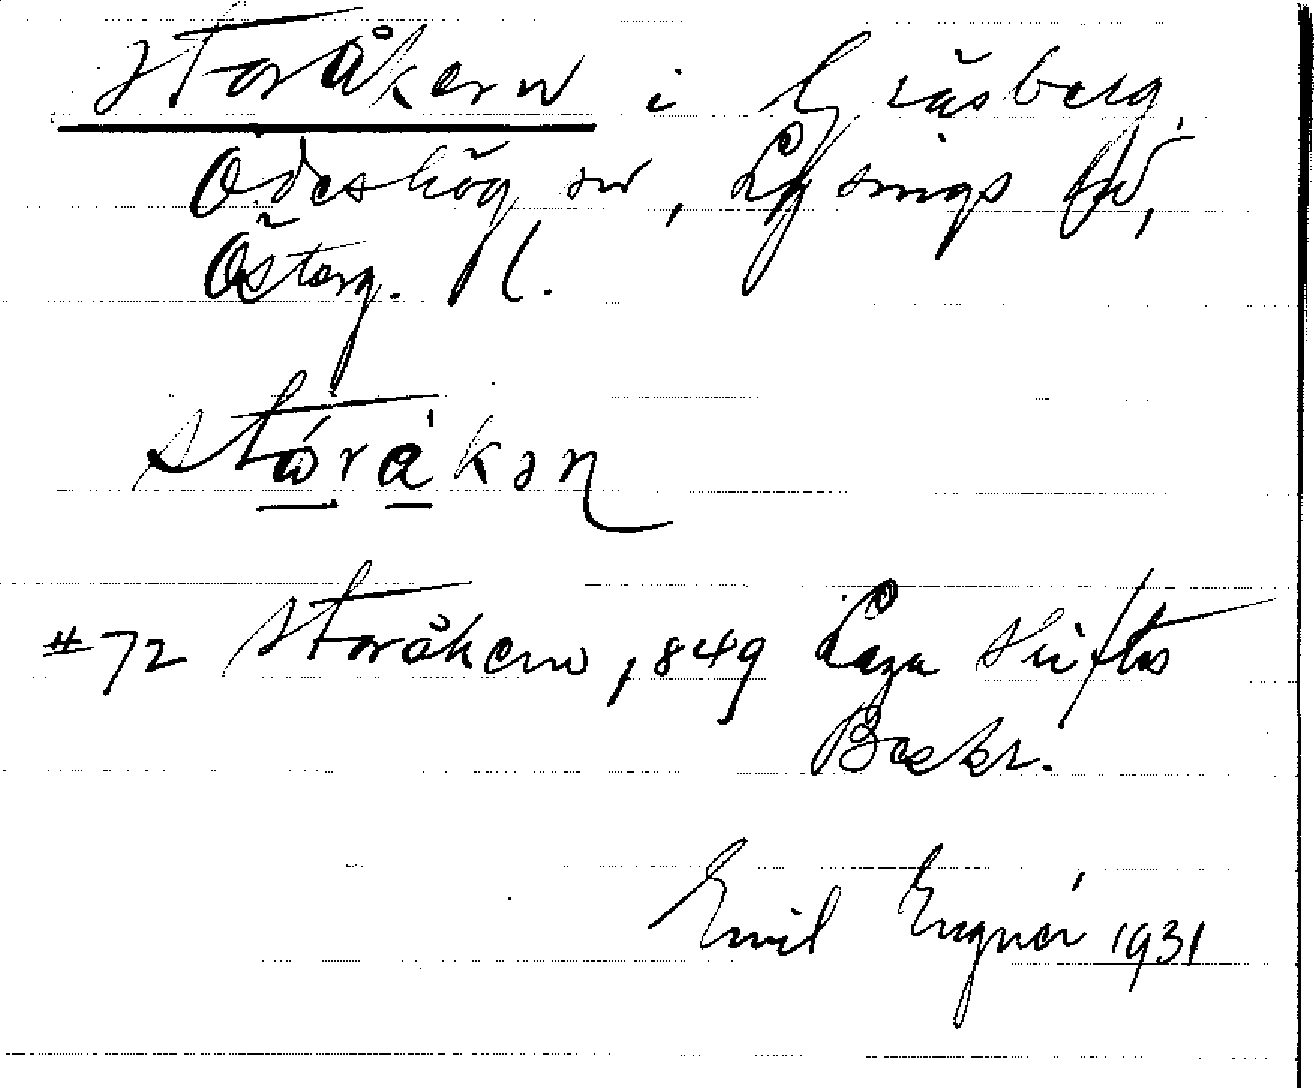 Storåkern i Gråsberg,
Ödeshög sn, Lysings hd,
Österg. l.
stóråkən
#72 Storåkern, 1849 Laga skiftes
Beskr.
Emil Engnér 1931